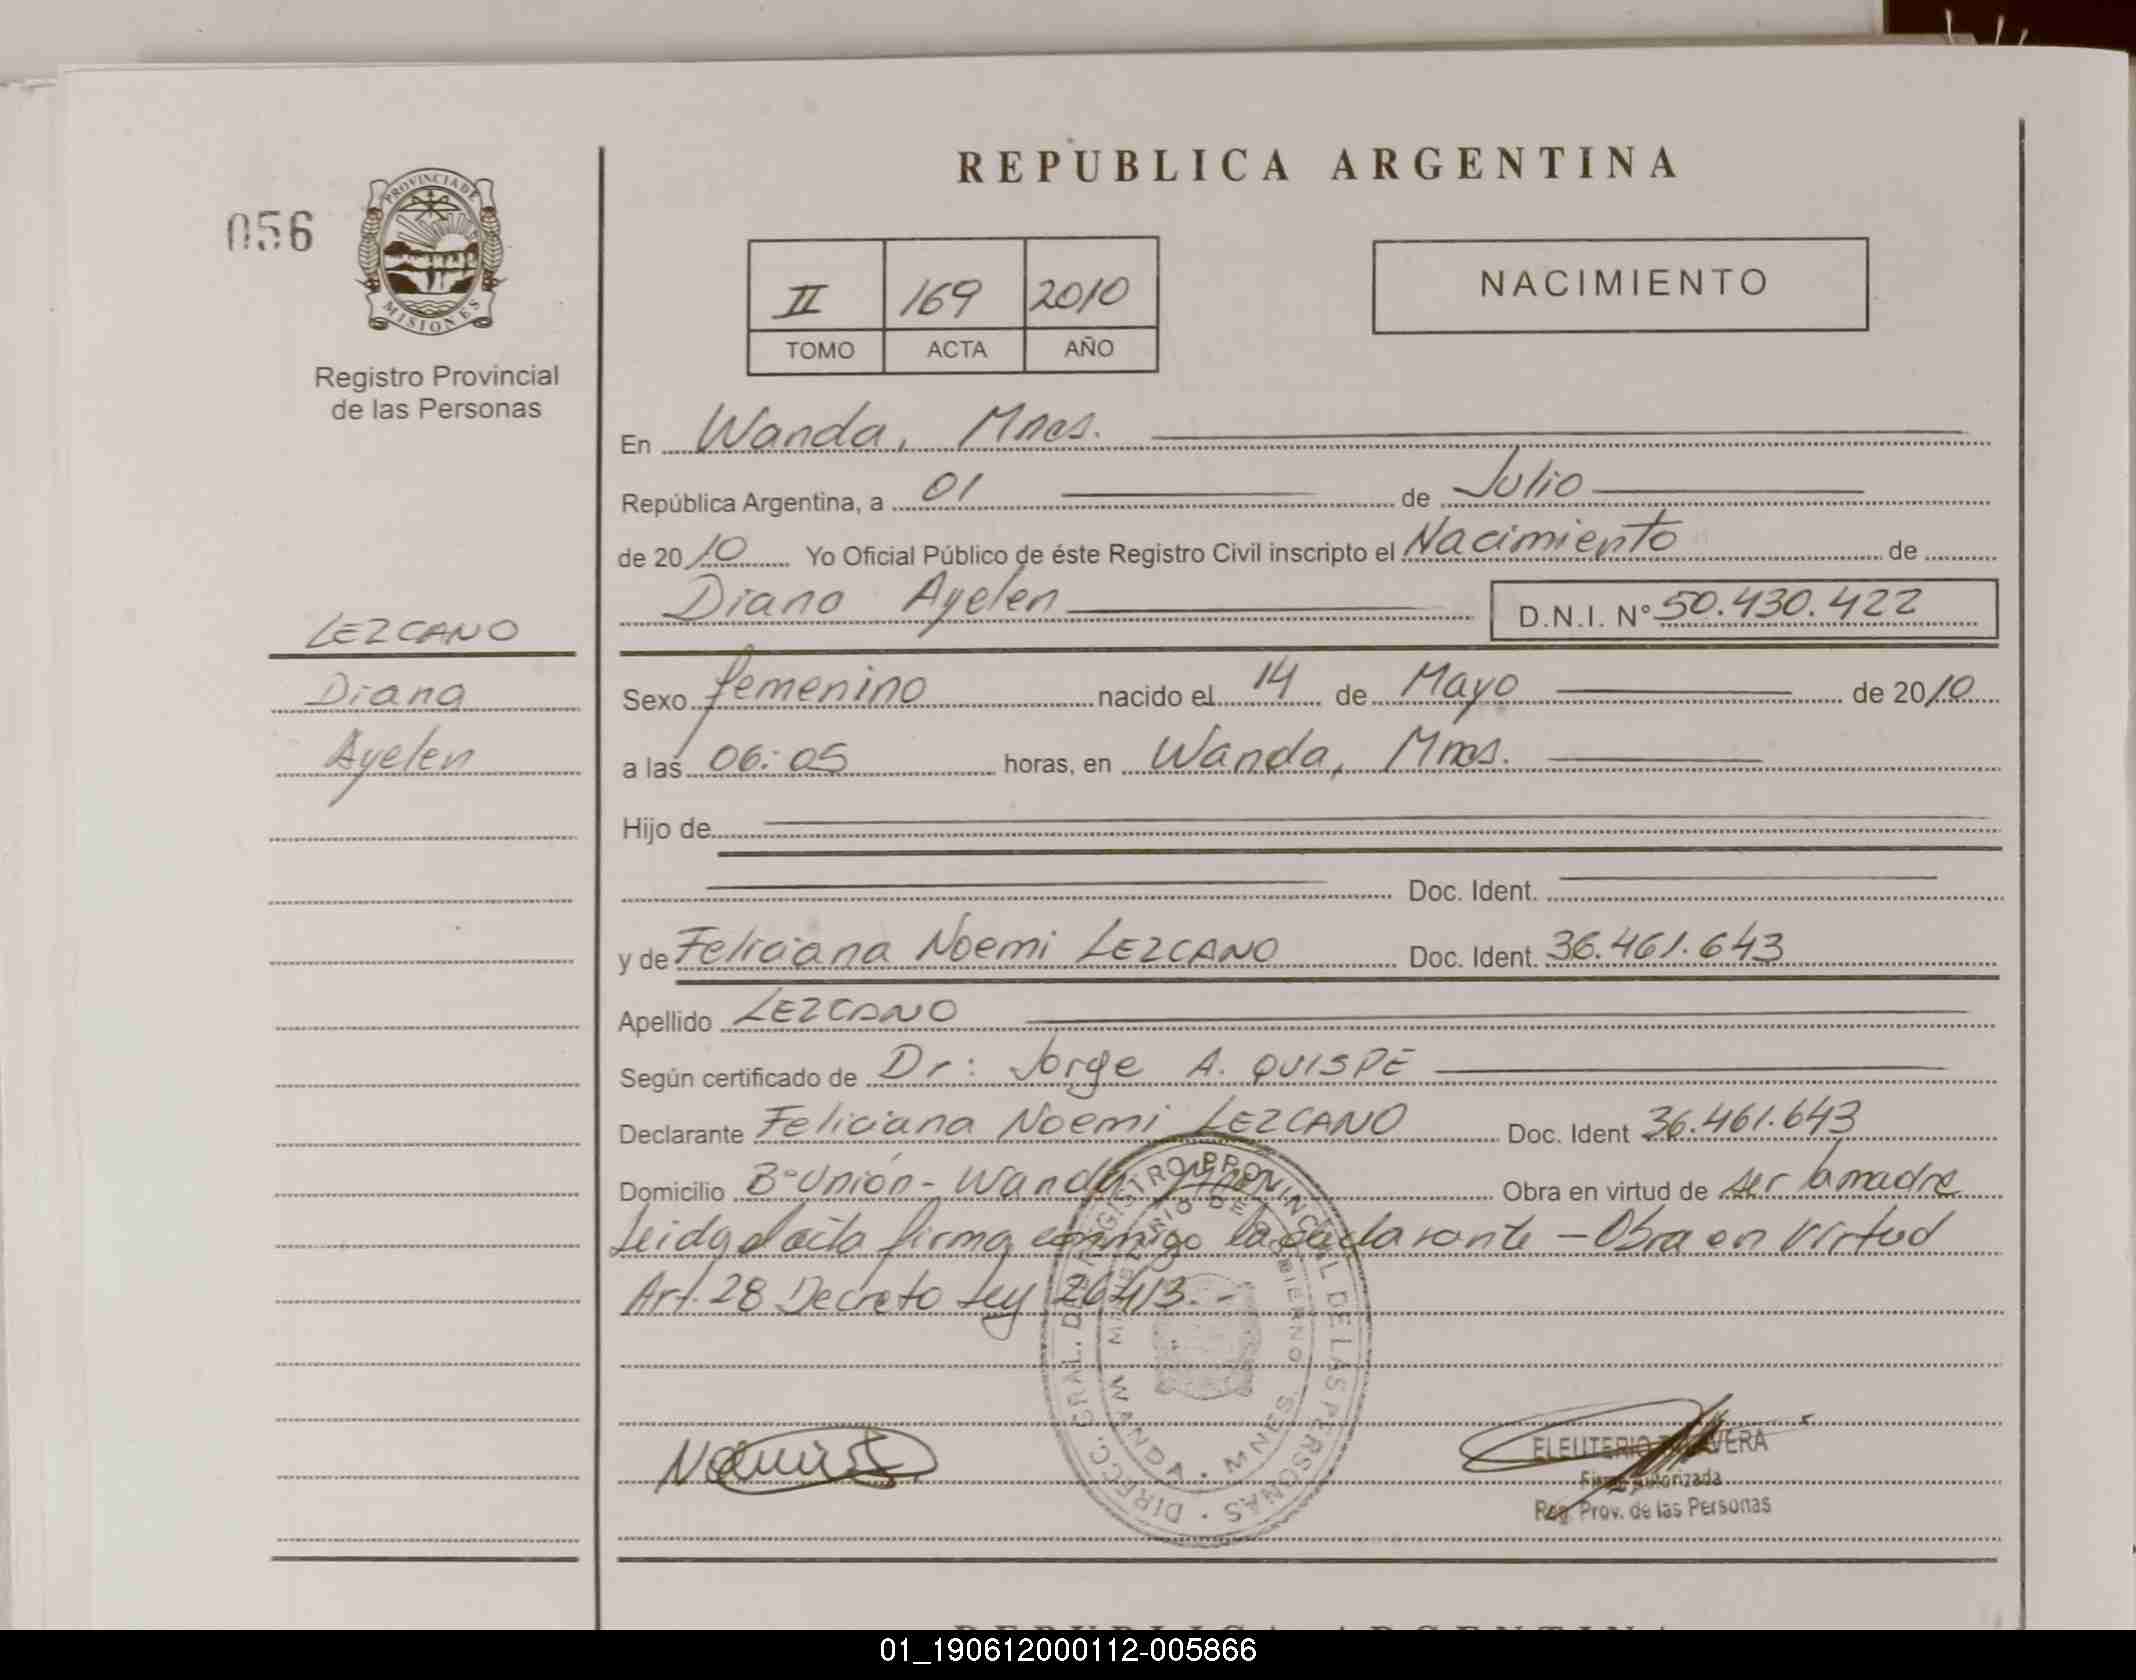 REPUBLICA ARGENTINA
056
PROVINCIA DE
MISIONES
Registro Provincial
de las Personas
II 169 2010
TOMO ACTA AÑO
NACIMIENTO
En Wanda, Mnes.
República Argentina, a 01 de Julio
de 2010 Yo Oficial Público de éste Registro Civil inscripto el Nacimiento de
Diana Ayelen D.N.I. Nº 50.430.422
LEZCANO
Diana
Ayelen
Sexo femenino nacido el 14 de Mayo de 2010
a las 06:05 horas, en Wanda, Mnes.
Hijo de
Doc. Ident.
y de Feliciana Noemi LEZCANO Doc. Ident. 36.461.643
Apellido LEZCANO
Según certificado de Dr: Jorge A. QUISPE
Declarante Feliciana Noemi LEZCANO Doc. Ident 36.461.643
Domicilio Bº Unión - Wanda Mnes Obra en virtud de ser la madre
Leida el acta firma conmigo la declarante - Obra en virtud
Art. 28 Decreto Ley 26413.-
DIRECC. GRAL. DEL REGISTRO PROVINCIAL DE LAS PERSONAS
MINISTERIO DE GOBIERNO
WANDA · MNES.
ELEUTERIO TALAVERA
Firma Autorizada
Reg. Prov. de las Personas
REPUBLICA ARGENTINA
01_190612000112-005866